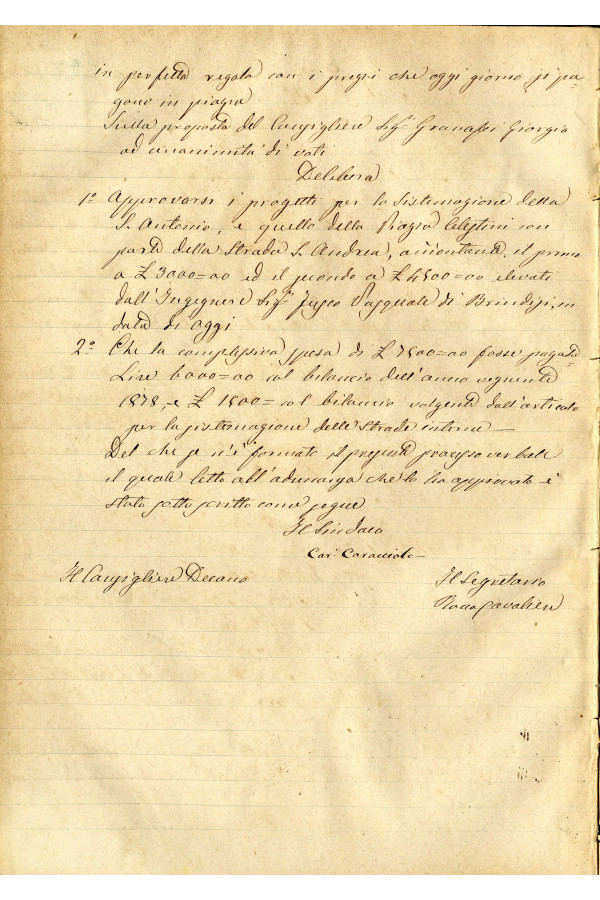 in perfetta regola con i prezzi che oggi giorno si pa-
gano in piazza
Sulla proposta del Consigliere Sigr Granafei Giorgio
ad unanimità di voti
Delibera
1º Approvarsi i progetti per la sistemazione della
S. Antonio, e quello della Piazza Celestini con
parte della Strada S. Andrea, ammontante il primo
a £ 3000=00 ed il secondo a £ 4500=00 elevati
dall'Ingegnere Sigr Fusco Pasquale di Brindisi, in
data di oggi
2º Che la complessiva spesa di £ 7500=00 fosse pagata
Lire 6000=00 sul bilancio dell'anno vegnente
1878, e £ 1500= sul bilancio volgente dall'articolo
per la sistemazione delle strade interne —
Del che se n'è formato il presente processo verbale
il quale letto all'adunanza che lo ha approvato è
stato sottoscritto come segue
Il Sindaco
Car. Caracciolo —
Il Consigliere Decano
Il Segretario
Rocco Cavaliere